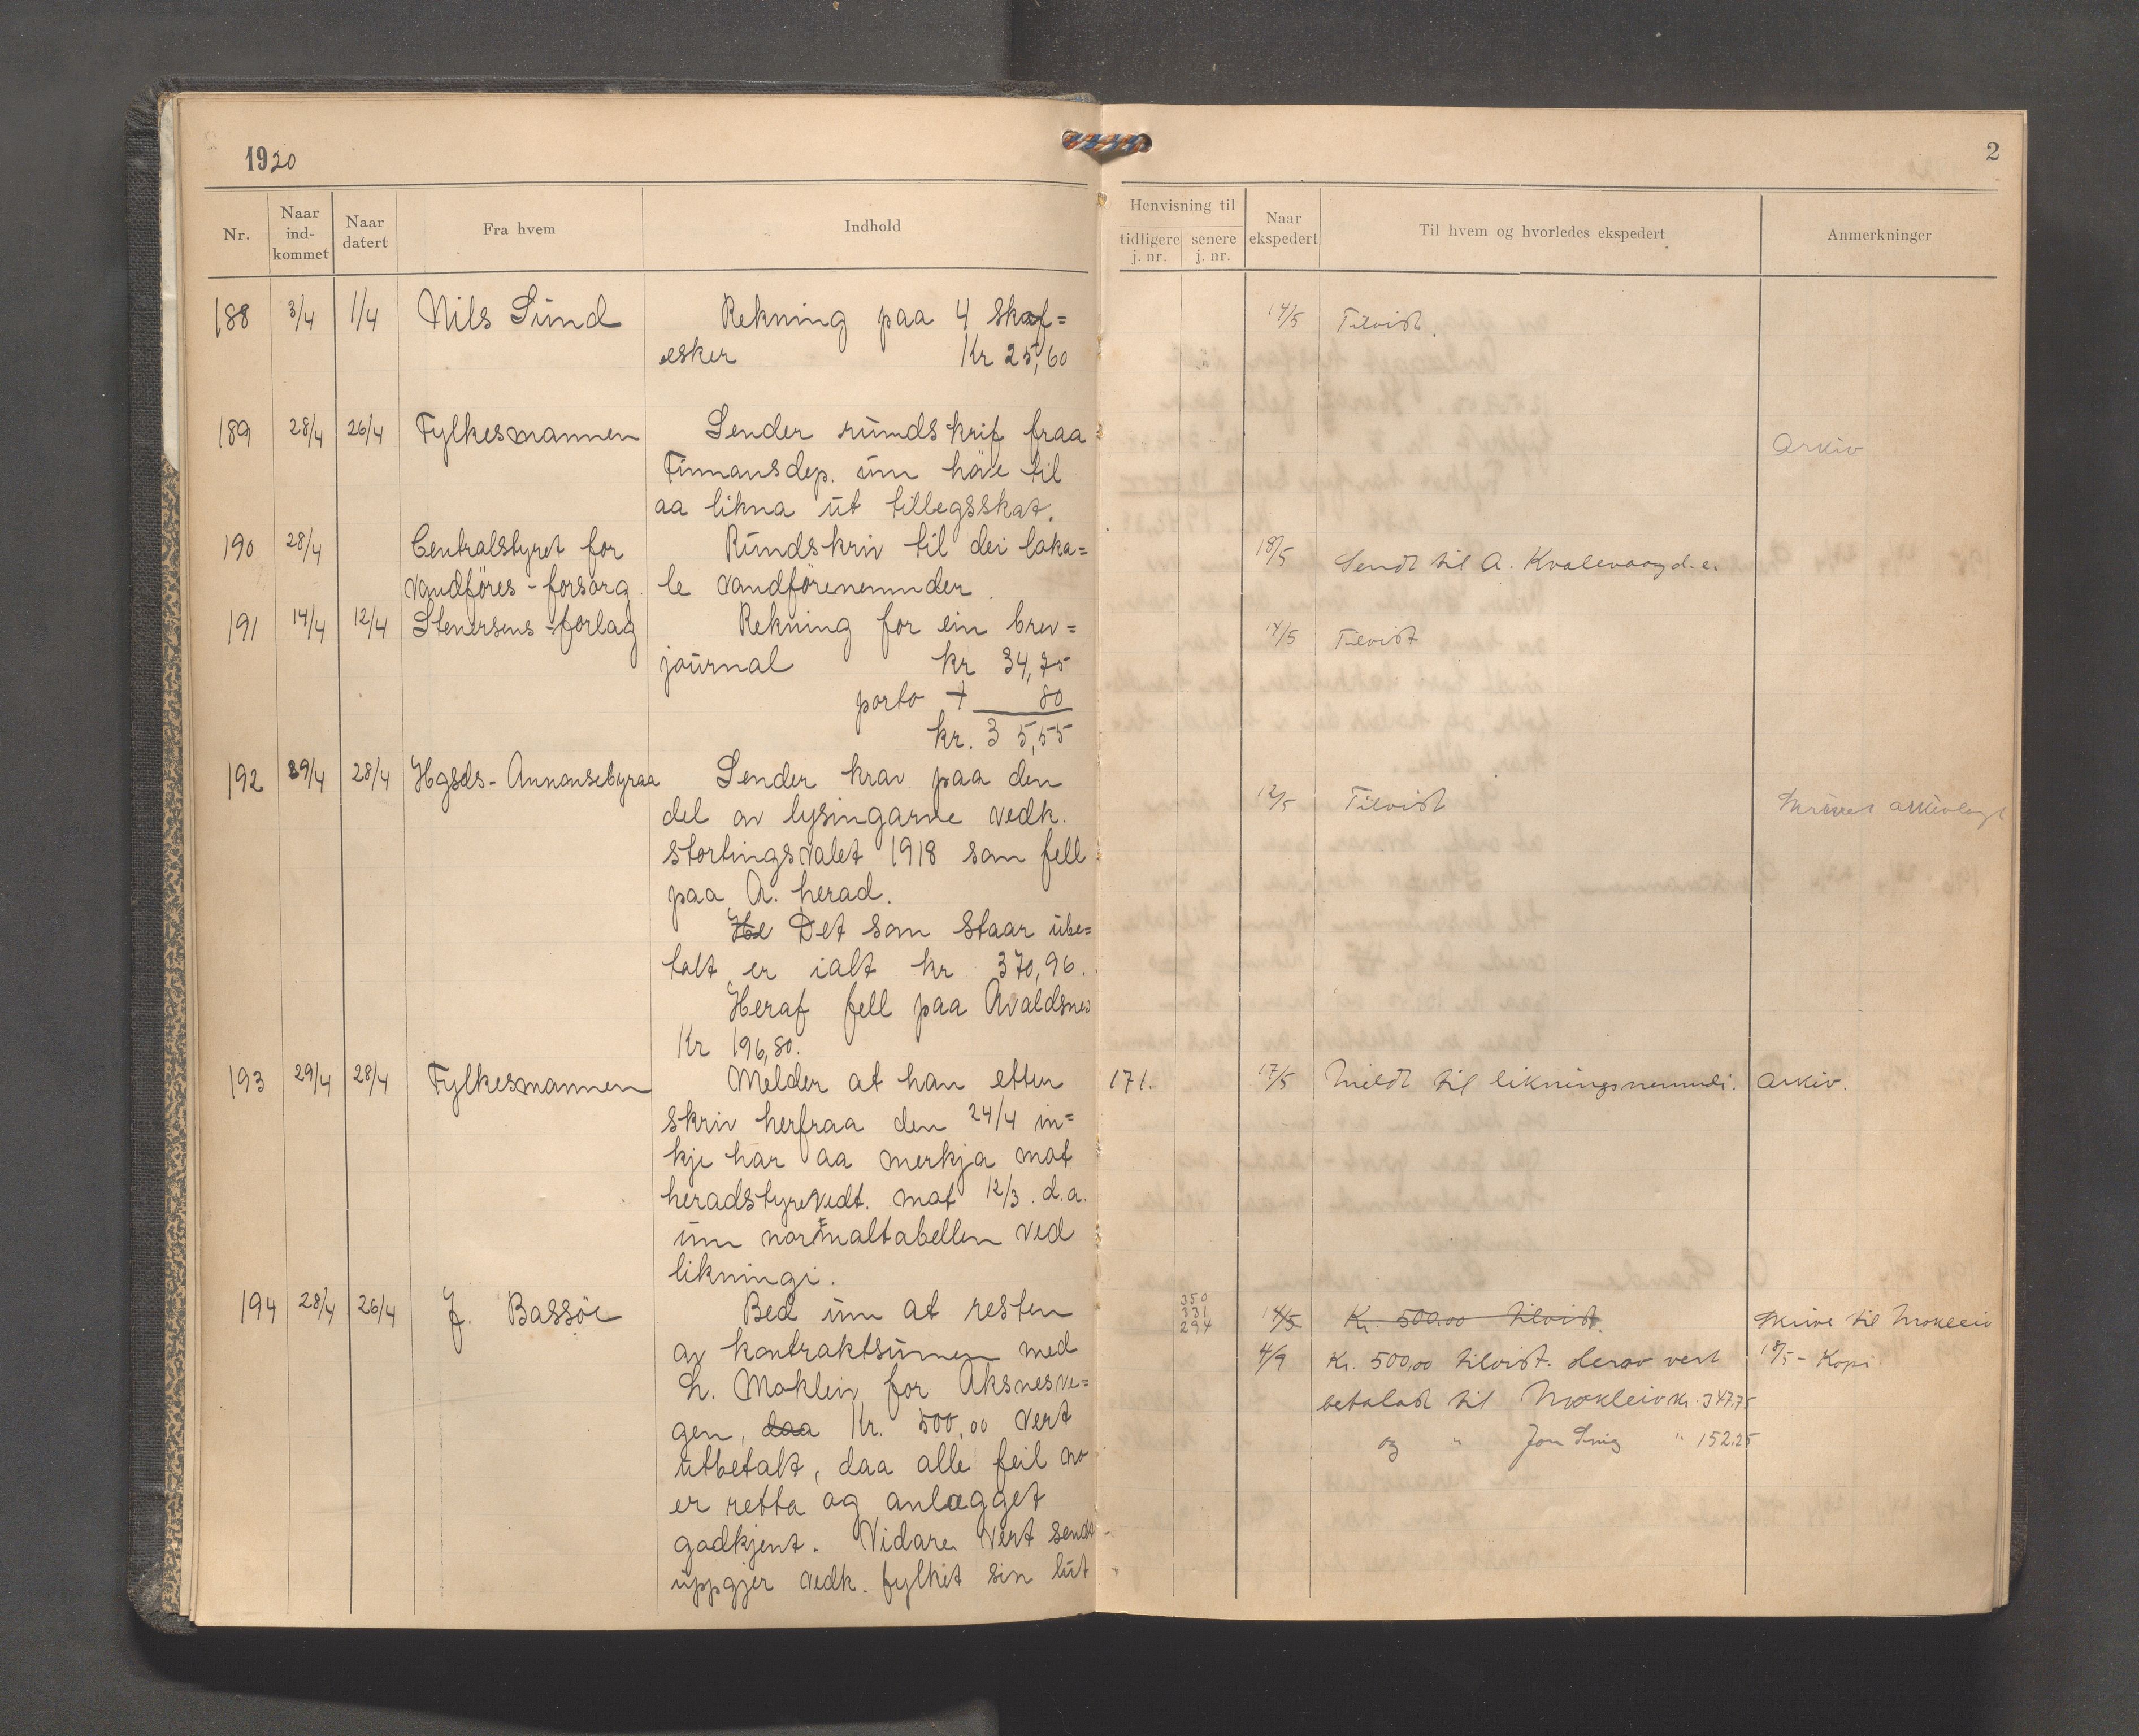 1920
2
Nr.
Naar ind-kommet
Naar datert
Fra hvem
Indhold
Henvisning til
tidligere j. nr.
senere j. nr.
Naar ekspedert
Til hvem og hvorledes ekspedert
Anmerkninger
188 3/4 1/4 Nils Sund Rekning paa 4 skaf= 14/5 Tilvist.
esker Kr 25,60
189 28/4 26/4 Fylkesmannen Sender rundskrif fraa Arkiv
Finnansdep. um høve til
aa likna ut tillegsskat.
190 28/4 Centralstyret for Rundskriv til dei loka= 18/5 Sendt til A. Kvalevaag d.e.
vandföres-forsorg le vandförenemnder.
191 14/4 12/4 Stenersens-forlag Rekning for ein brev= 14/5 Tilvist
journal kr 34,75
porto + 80
kr. 35,55
192 29/4 28/4 Hgsds-Annonsebyraa Sender krav paa den 12/5 Tilvist
del av lysingarne vedk.
stortingsvalet 1918 som fell
paa A. herad.
He Det som staar ube=
talt er ialt kr 370,96.
Heraf fell paa Avaldsnes
Kr 196,80.
193 29/4 28/4 Fylkesmannen Melder at han etter 171. 17/5 Meldt til likningsnemndi. Arkiv.
skriv herfraa den 24/4 in=
kje har aa merkja mot
heradstyrevedt. mot 12/3. d.a.
um normaltabellen ved
likningi.
194 28/4 26/4 J. Bassöe Bed um at resten 350 331 294 14/5 Kr. 500.00 tilvist. Skrive til Mokleiv
av kontraktsumen med 4/9 Kr. 500,00 tilvist. derav vert 18/5 - Kopi
L. Mokleiv for Aksnesve= betalad til Mokleiv Kr. 347,75
gen, daa Kr. 500,00 vert og " Jon " 152.25
utbetalt, daa alle feil no
er retta og anlægget
godkjent. Vidare vert sendt
uppgjer vedk. fylkit sin lut